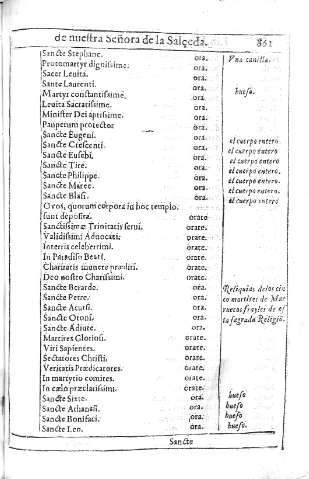 de nuestra Señora de la Salçeda. 861
Sancte Stephane. ora. Vna canilla.
Protomartyr dignissime. ora.
Sacer Leuita. ora.
Sante Laurenti. ora.
Martyr constantissime. ora. hueso.
Leuita Sacratissime. ora.
Minister Dei aptissime. ora.
Pauperum protector ora.
Sancte Eugeni. ora. el cuerpo entero
Sancte Crescenti. ora. el cuerpo entero
Sancte Eusebi. ora. el cuerpo entero
Sancte Tite. ora. el cuerpo entero.
Sancte Philippe. ora. el cuerpo entero.
Sancte Maree. ora. el cuerpo entero.
Sancte Blasi. ora. el cuerpo entero
O vos, quorum corpora in hoc templo.
sunt deposita. orate
Sanctissimæ Trinitatis serui. orate.
Validissimi Aduocati. orate.
In terris celeberrimi. orate.
In Paradiso Beati. orate.
Charitatis munere præditi. orate.
Deo nostro Charissimi. orate.
Sancte Berardo. ora. Reliquias de los cin
Sancte Petre. ora. co martires de Mar
Sancte Acursi. ora. ruecos frayles de es
Sancte Otoni. ora. ta sagrada Religiõ.
Sancte Adiute. ora.
Martires Gloriosi. orate.
Viri Sapientes. orate.
Sectatores Christi. orate.
Veritatis Prædicatores. orate.
In martyrio comites. orate.
In cælo præclarissimi. orate.
Sancte Sixte. ora. hueso
Sancte Athanasi. ora. hueso
Sancte Bonifaci. ora. hueso
Sancte Leo. ora. hueso.
Sancte